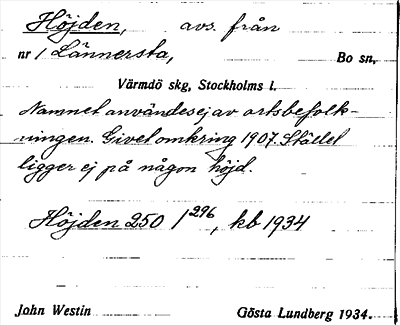 Höjden, avs. från
nr 1 Lännersta, Bo sn,
Värmdö skg, Stockholms l.
Namnet användes ej av ortsbefolk-
ningen. Givet omkring 1907. Stället
ligger ej på någon höjd.
Höjden 250 / 296, kb 1934
John Westin Gösta Lundberg 1934.